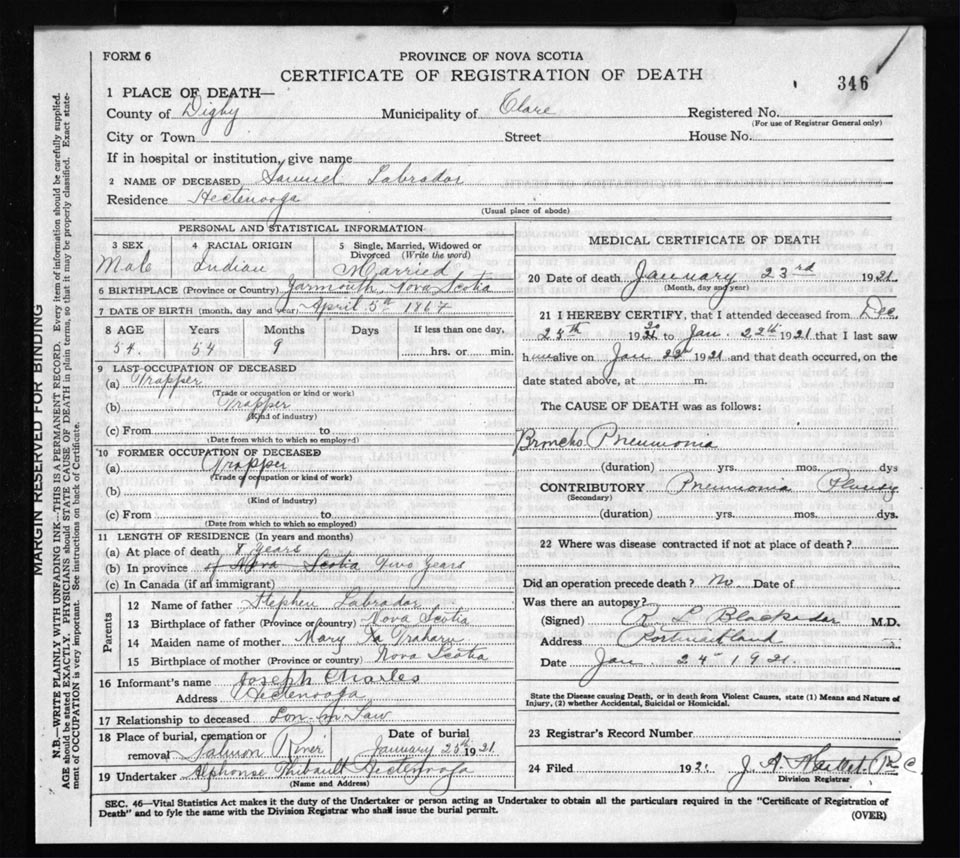 FORM 6
PROVINCE OF NOVA SCOTIA
CERTIFICATE OF REGISTRATION OF DEATH
346
1 PLACE OF DEATH—
County of Digby Municipality of Clare Registered No.
(For use of Registrar General only)
City or Town Street House No.
If in hospital or institution, give name
2 NAME OF DECEASED Samuel Labrador
Residence Hectenooga
(Usual place of abode)
PERSONAL AND STATISTICAL INFORMATION
3 SEX 4 RACIAL ORIGIN 5 Single, Married, Widowed or Divorced (Write the word)
Male Indian Married
6 BIRTHPLACE (Province or Country) Yarmouth, Nova Scotia
7 DATE OF BIRTH (month, day and year) April 5th 1867
8 AGE Years Months Days If less than one day,
54 54 9 hrs. or min.
9 LAST OCCUPATION OF DECEASED
(a) Trapper
(Trade or occupation or kind of work)
(b) Trapper
(Kind of industry)
(c) From to
(Date from which to which so employed)
10 FORMER OCCUPATION OF DECEASED
(a) Trapper
(Trade or occupation or kind of work)
(b)
(Kind of industry)
(c) From to
(Date from which to which so employed)
11 LENGTH OF RESIDENCE (In years and months)
(a) At place of death years
(b) In province of Nova Scotia Two Years
(c) In Canada (if an immigrant)
Parents
12 Name of father Stephen Labrador
13 Birthplace of father (Province or country) Nova Scotia
14 Maiden name of mother Mary
15 Birthplace of mother (Province or country) Nova Scotia
16 Informant's name Joseph Charles
Address Hectenooga
17 Relationship to deceased Son in Law
18 Place of burial, cremation or removal Salmon River
Date of burial
January 25th 1921
19 Undertaker Alphonse Thibault Hectenooga
(Name and Address)
MEDICAL CERTIFICATE OF DEATH
20 Date of death January 23rd 1921
(Month, day and year)
21 I HEREBY CERTIFY, that I attended deceased from Dec.
1920 to Jan. 22nd 1921 that I last saw
him alive on Jan 22nd 1921 and that death occurred, on the
date stated above, at m.
The CAUSE OF DEATH was as follows:
Broncho Pneumonia
(duration) yrs. mos. dys
CONTRIBUTORY Pneumonia Pleurisy
(Secondary)
(duration) yrs. mos. dys.
22 Where was disease contracted if not at place of death?
Did an operation precede death? No Date of
Was there an autopsy?
(Signed) R L Blackadar M.D.
Address Port Maitland
Date Jan 24th 1921.
State the Disease causing Death, or in death from Violent Causes, state (1) Means and Nature of
Injury, (2) whether Accidental, Suicidal or Homicidal.
23 Registrar's Record Number
24 Filed 192 J. A.
Division Registrar
SEC. 46—Vital Statistics Act makes it the duty of the Undertaker or person acting as Undertaker to obtain all the particulars required in the "Certificate of Registration of
Death" and to fyle the same with the Division Registrar who shall issue the burial permit.
(OVER)
MARGIN RESERVED FOR BINDING
N.B.—WRITE PLAINLY WITH UNFADING INK—THIS IS A PERMANENT RECORD. Every item of information should be carefully supplied.
AGE should be stated EXACTLY. PHYSICIANS should STATE CAUSE OF DEATH in plain terms, so that it may be properly classified. Exact state-
ment of OCCUPATION is very important. See instructions on back of Certificate.